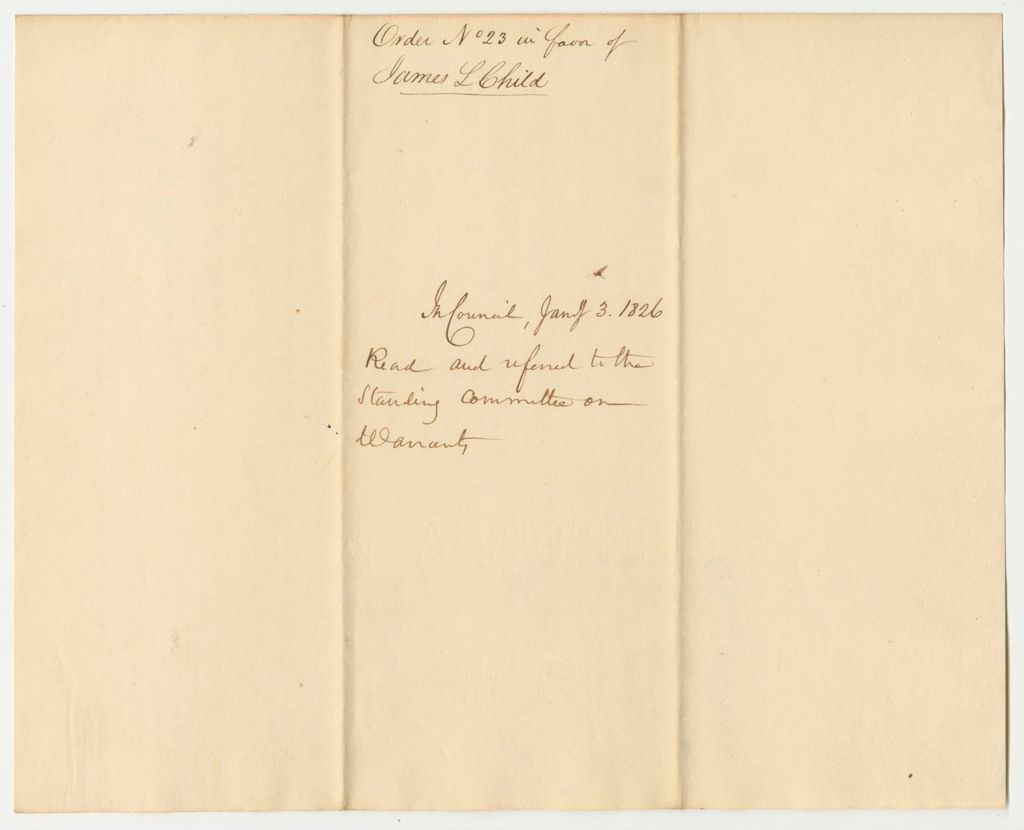 Order No 23 in favor of
James L Child
In Council, Jany 3. 1826
Read and referred to the
Standing Committee on
Warrants